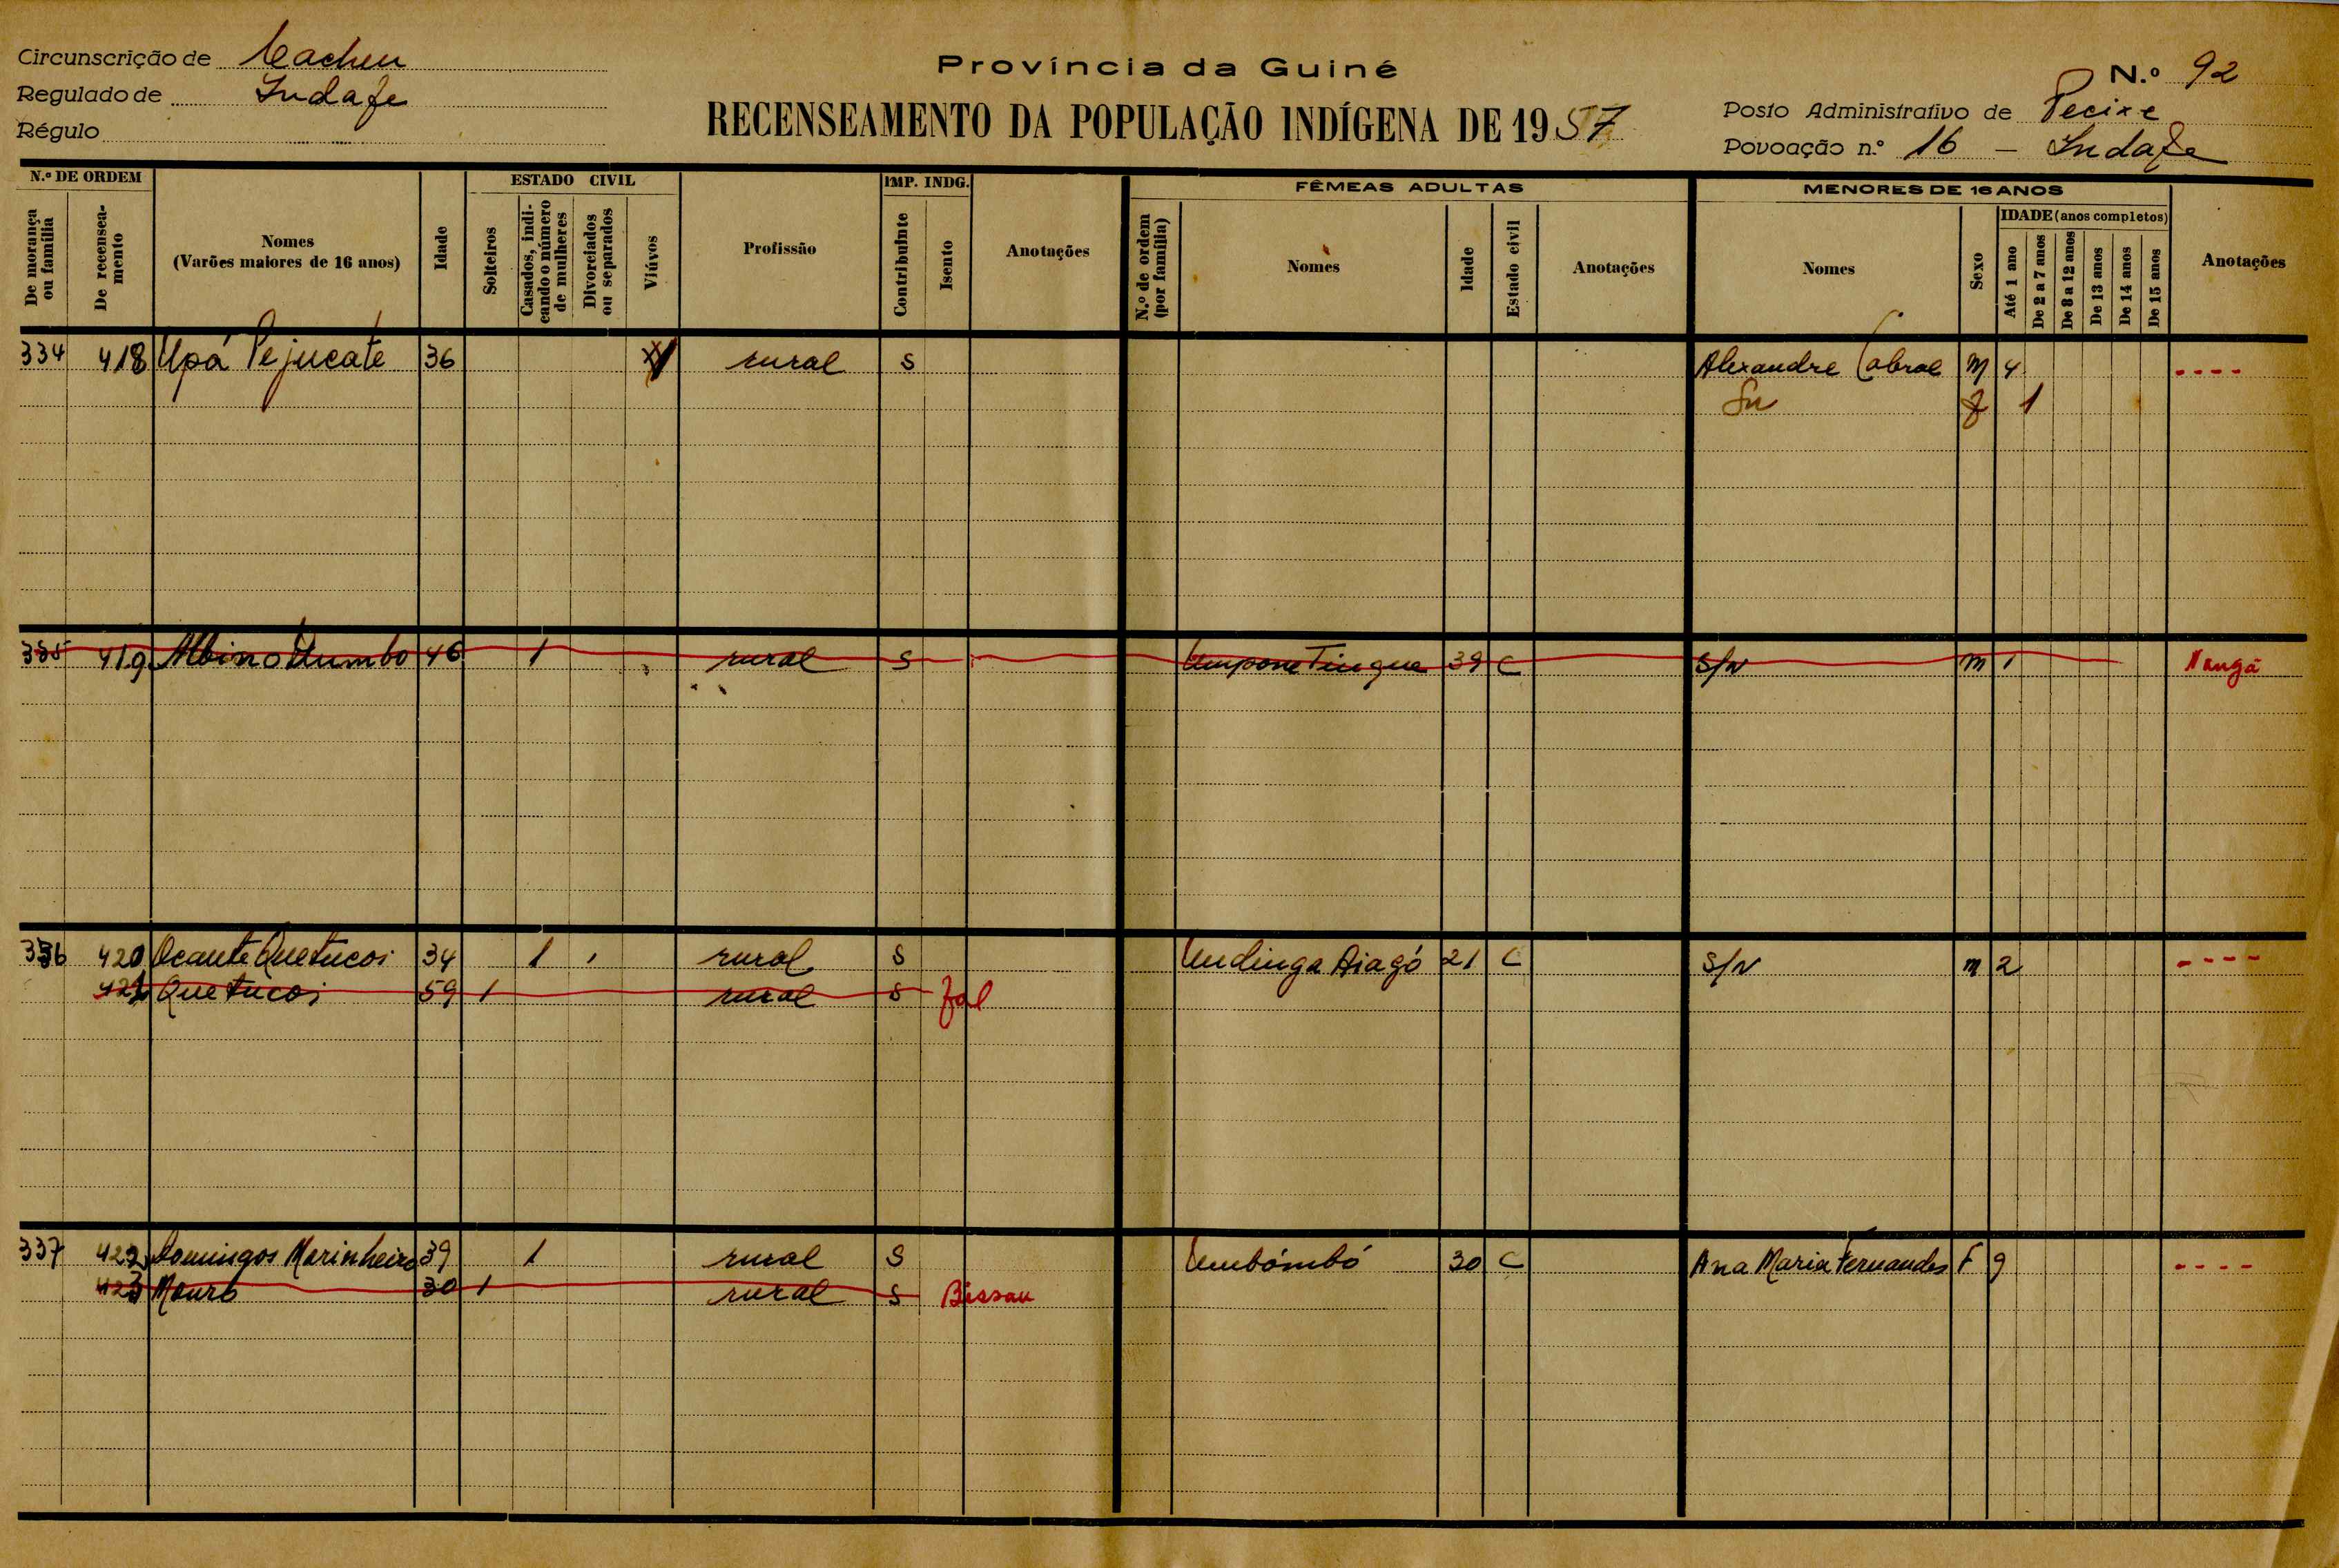 Circunscrição de Cacheu
Regulado de Indafe
Régulo
Província da Guiné
RECENSEAMENTO DA POPULAÇÃO INDÍGENA DE 1957
N.º 92
Posto Administrativo de Pecixe
Povoação n.º 16 - Indafe
N.º DE ORDEM
De morança ou família
De recenseamento
Nomes
(Varões maiores de 16 anos)
Idade
ESTADO CIVIL
Solteiros
Casados, indicando o número de mulheres
Divorciados ou separados
Viúvos
Profissão
IMP. INDG.
Contribuinte
Isento
Anotações
FÊMEAS ADULTAS
N.º de ordem (por família)
Nomes
Idade
Estado civil
Anotações
MENORES DE 16 ANOS
Nomes
Sexo
IDADE (anos completos)
Até 1 ano
De 2 a 7 anos
De 8 a 12 anos
De 13 anos
De 14 anos
De 15 anos
Anotações
334 418 Upá Pejucate 36 rural S Alexandre Cabral M 4 ----
Sn f 1
335 419 Albino 46 1 rural S Umpone Tingue 39 C S/N M 1 Nangã
336 420 Ocante Quetucoi 34 1 rural S Undinga Biagó 21 C S/N M 2 ----
421 Quetucoi 59 1 rural S fal
337 422 Domingos Marinheiro 39 1 rural S Umbómbó 30 C Ana Maria Fernandes F 9 ----
423 Mouro 30 1 rural S Bissau